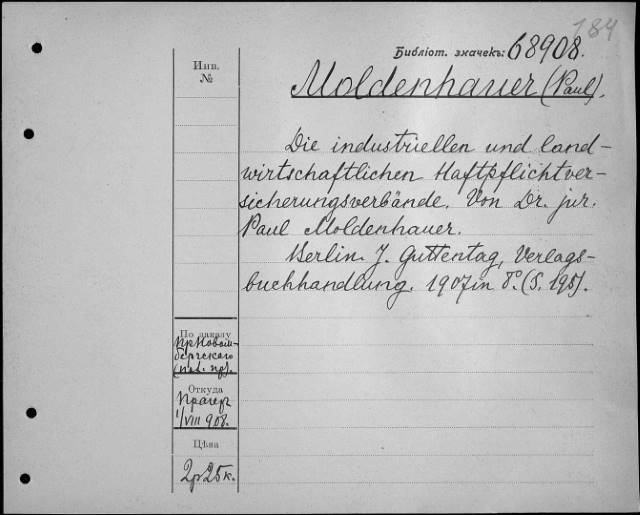 184
Библіот. значекъ: 68908.
Инв.
№
Moldenhauer (Paul).
Die industriellen und land-
wirtschaftlichen Haftpflichtver-
sicherungsverbände. Von Dr. jur.
Paul Moldenhauer.
Berlin. J. Guttentag, Verlags-
buchhandlung. 1907 in 8°. (S. 195).
По заказу
Откуда
Прагеръ
1/VIII 908.
Цѣна
2р 25к.